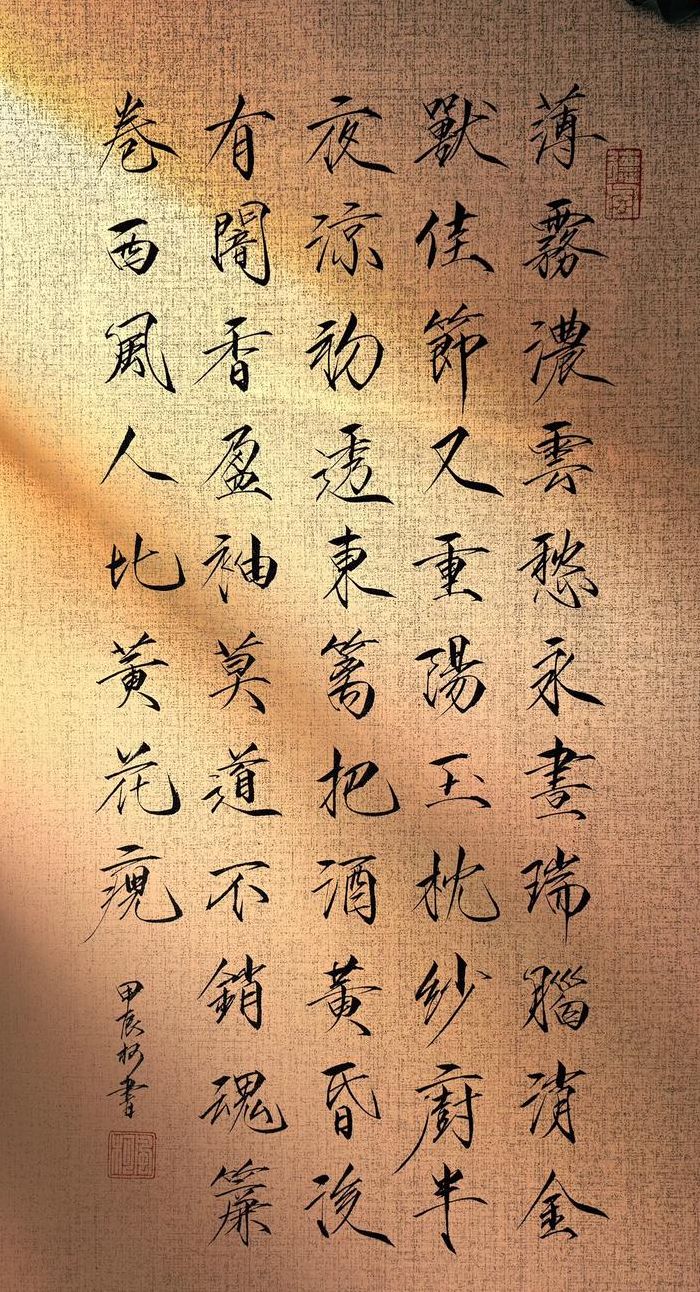 薄霧濃雲愁永晝瑞腦消金
獸佳節又重陽玉枕紗廚半
夜涼初透東篱把酒黃昏後
有闇香盈袖莫道不銷魂簾
卷西風人比黃花瘦
甲辰書